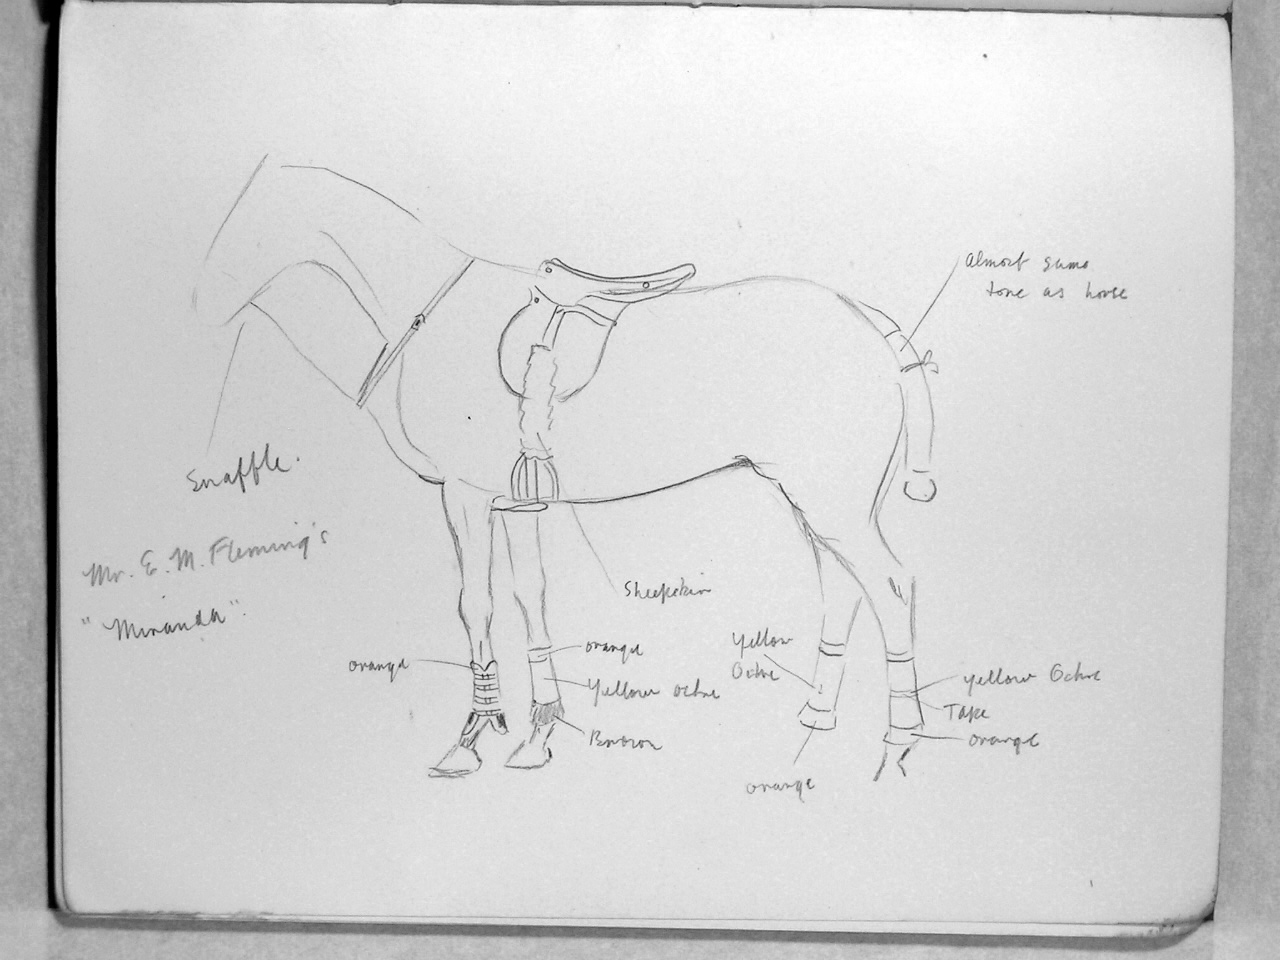 Almost same
tone as horse
Snaffle.
Mr. E. M. Fleming's
"Miranda".
Sheepskin
orange
orange
Yellow ochre
Brown
Yellow
Ochre
orange
Yellow Ochre
Tape
orange